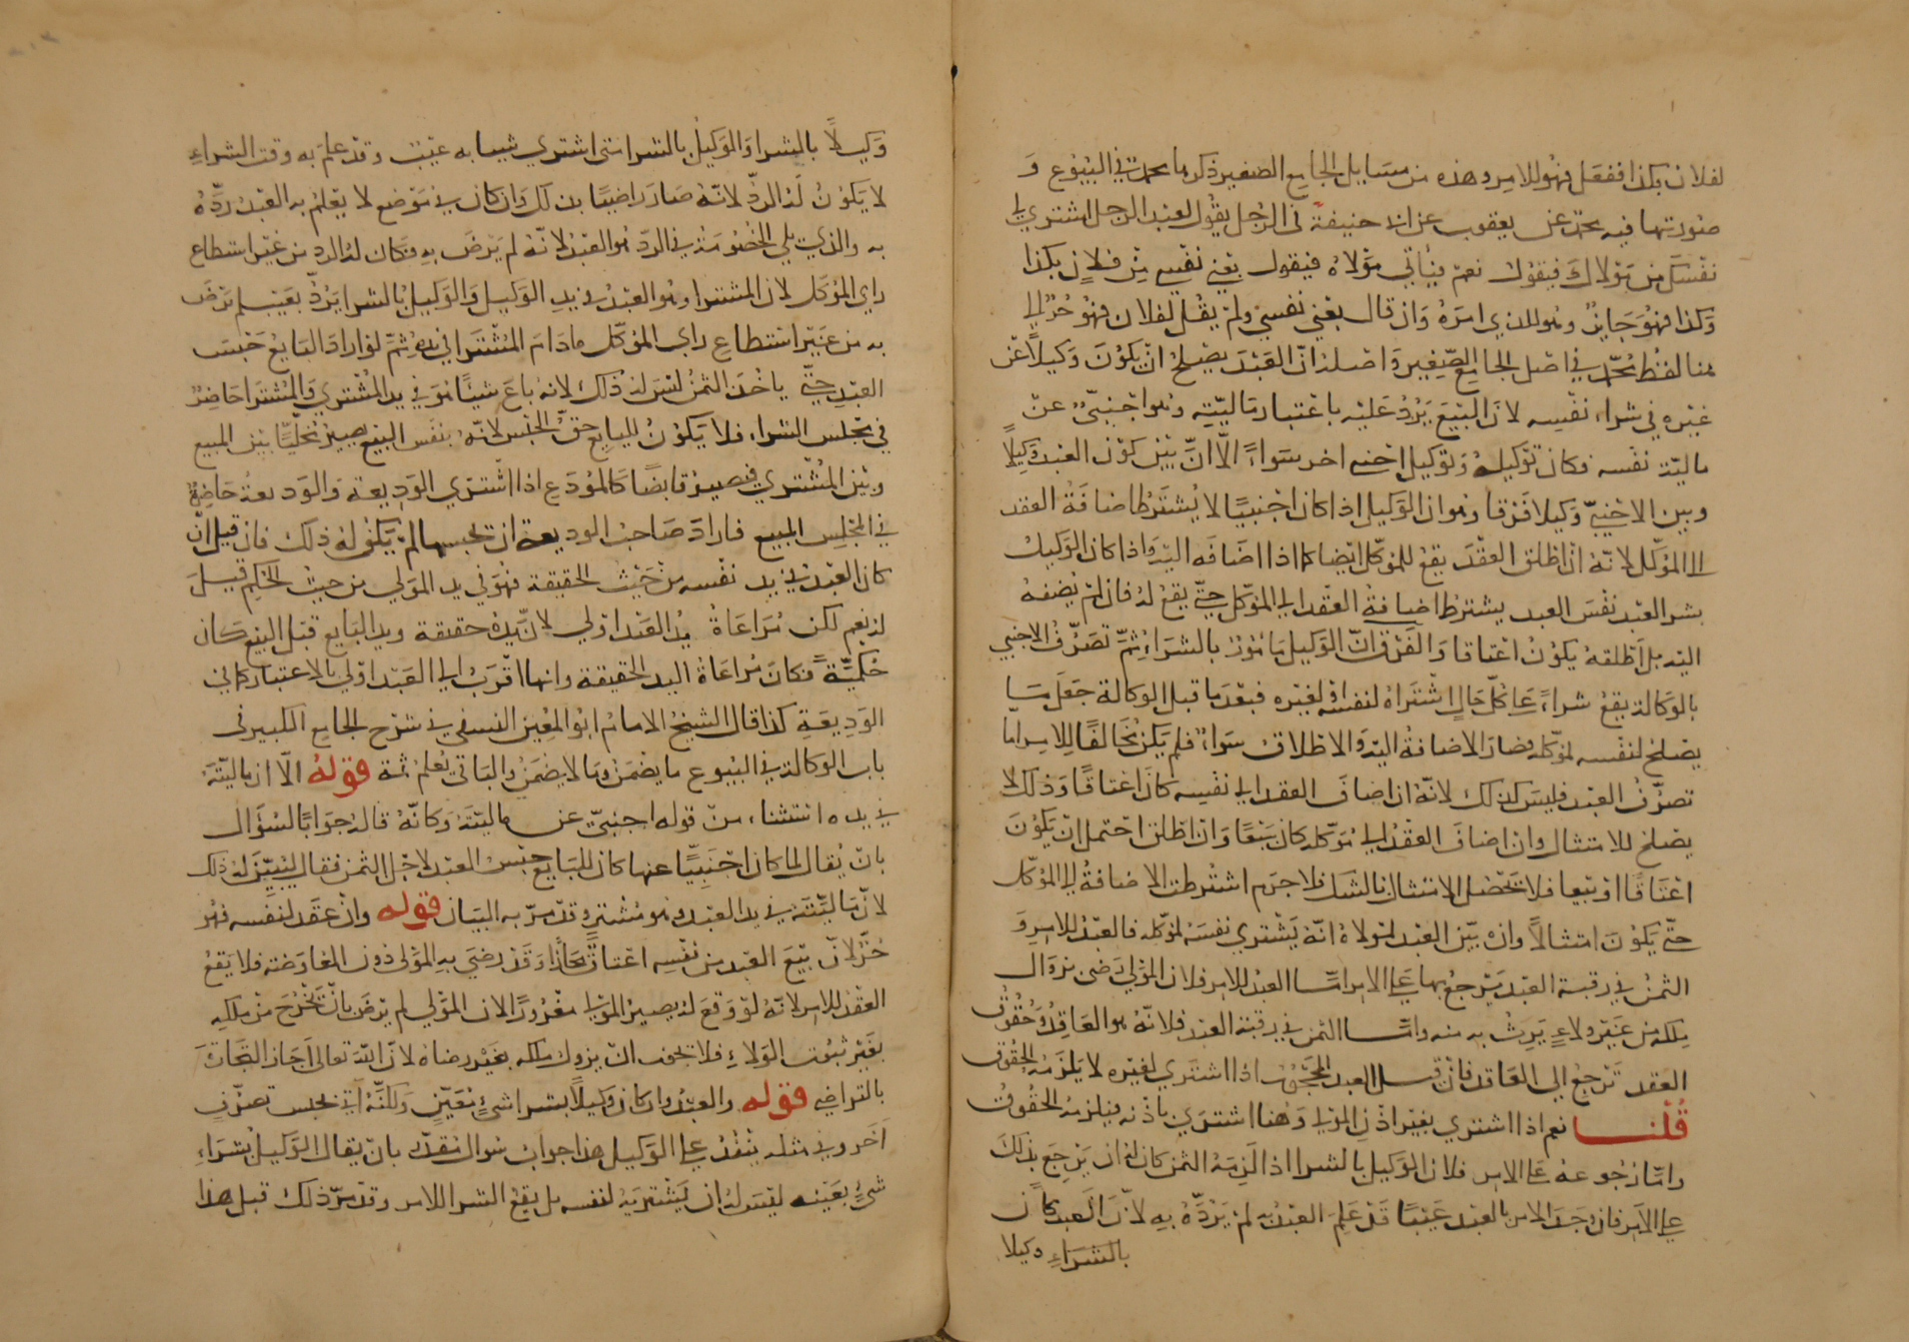 لفلان بكذا ففعل فهو للامر وهذه من مسايل الجامع الصغير ذكرها محمد في البيوع و
صورتها فيه محمد عن يعقوب عن ابي حنيفة في الرجل يقول لعبد الرجل اشتر لي
نفسك من مولاك فيقول نعم فيأتي مولاه فيقول بعني نفسي من فلان بكذا
وكذا فهو جايز وهو للذي امره وان قال بعني نفسي ولم يقل لفلان فهو حر الى
هنا لفظ محمد في اصل الجامع الصغير واصله ان العبد يصلح ان يكون وكيلا عن
غيره في شراء نفسه لان البيع يرد عليه باعتبار ماليته وهو اجنبي عن
مالية نفسه فكان توكيله وتوكيل اجنبي اخر سواء الا ان بين كون العبد وكيلا
وبين الاجنبي وكيلا فرقا وهو ان الوكيل اذا كان اجنبيا لا يشترط اضافة العقد
الى الموكل لانه ان اطلق العقد يقع للموكل ايضا كما اذا اضافه اليه واذا كان الوكيل
بشر العبد نفس العبد يشترط اضافة العقد الى الموكل حتى يقع له فان لم يضفه
اليه بل اطلقه يكون اعتاقا والفرق ان الوكيل مامور بالشراء ثم تصرف الاجنبي
بالوكالة يقع شراء على كل حال اشتراه لنفسه او لغيره فبعد ما قبل الوكالة جعل مشتريا
يصلح لنفسه لموكله فصار الاضافة اليه والاطلاق سواء فلم يكن مخالفا للامر اما
تصرف العبد فليس كذلك لانه ان اضاف العقد الى نفسه كان اعتاقا وذلك لا
يصلح للامتثال وان اضاف العقد الى موكله كان بيعا وان اطلق احتمل ان يكون
اعتاقا او بيعا فلا يحصل الامتثال بالشك فلا جرم اشترطت الاضافة الى الموكل
حتى يكون امتثالا وان بين العبد لمولاه انه يشتري نفسه لموكله فالعبد للامر و
الثمن في رقبة العبد يرجع بها على الامر اما العبد للامر فلان المولى رضى بزوال
ملكه من غير ولاء يرث به منه واما الثمن في رقبة العبد فلانه هو العاقد وحقوق
العقد ترجع الى العاقد فان قيل العبد المحجور اذا اشترى لغيره لا يلزمه الحقوق
قلنا نعم اذا اشترى بغير اذن المولى وهنا اشترى باذنه فيلزمه الحقوق
واما رجوعه على الامر فلان الوكيل بالشرا اذا لزمه الثمن كان له ان يرجع بذلك
على الامر فان وجد الامر بالعبد عيبا قد علم العبد به لم يرده به لان العبد كان
بالشراء وكيلا
وكيلا بالشرا والوكيل بالشرا متى اشترى شيا به عيب وقد علم به وقت الشراء
لا يكون له الرد لانه صار راضيا بذلك وان كان في موضع لا يعلم به العبد رده
به والذي يلي الخصومة في الرد هو العبد لانه لم يرض به فكان له الرد من غير استطلاع
راي الموكل لان المشترا وهو العبد في يد الوكيل والوكيل بالشرا يرد بعيب لم يرض
به من غير استطلاع راي الموكل ما دام المشترا في يده ثم لو اراد البايع حبس
العبد حتى ياخذ الثمن ليس له ذلك لانه باع شيئا هو في يد المشتري والمشترا حاضر
في مجلس الشراء فلا يكون للبايع حق الحبس لانه بنفس البيع يصير مخليا بين المبيع
وبين المشتري فيصير قابضا كالمودع اذا اشترى الوديعة والوديعة حاضرة
في المجلس المبيع فاراد صاحب الوديعة ان يحبسها لم يكن له ذلك فان قيل ان
كان العبد في يد نفسه من حيث الحقيقة فهو في يد المولى من حيث الحكم قيل
له نعم لكن مراعاة يد العبد اولى لان يده حقيقة ويد البايع قبل البيع كان
حكمية فكان مراعاة اليد الحقيقة وانها اقرب الى العبد اولى بالاعتبار كما في
الوديعة كذا قال الشيخ الامام ابو المعين النسفي في شرح الجامع الكبير في
باب الوكالة في البيوع ما يضمن وما لا يضمن والباقي يعلم ثمة قوله الا ان ماليته
في يده استثناء من قوله اجنبي عن ماليته وكانه قاله جوابا لسؤال
بان يقال لما كان اجنبيا عنها كان للبايع حبس العبد لاجل الثمن فقال ليس له ذلك
لان ماليته في يد العبد وهو مشتر وقد مر به البيان قوله وان عقد لنفسه فهو
حر لان بيع العبد من نفسه اعتاق مجازا وقد رضي به المولى دون المعاوضة فلا يقع
العقد للامر لانه لو وقع له يصير المولى مغرورا لان المولى لم يرض بان يخرج من ملكه
بغير ثبوت الولاء فلا يجوز ان يزول ملكه بغير رضاه لان الله تعالى اجاز التجارة
بالتراضي قوله والعبد وان كان وكيلا بشرا شيء معين ولكنه اتى بجنس تصرف
آخر وفي مثله ينفذ على الوكيل هذا جواب سوال مقدر بان يقال الوكيل بشراء
شيء بعينه ليس له ان يشتريه لنفسه بل يقع الشرا للامر وقد مر ذلك قبل هذا